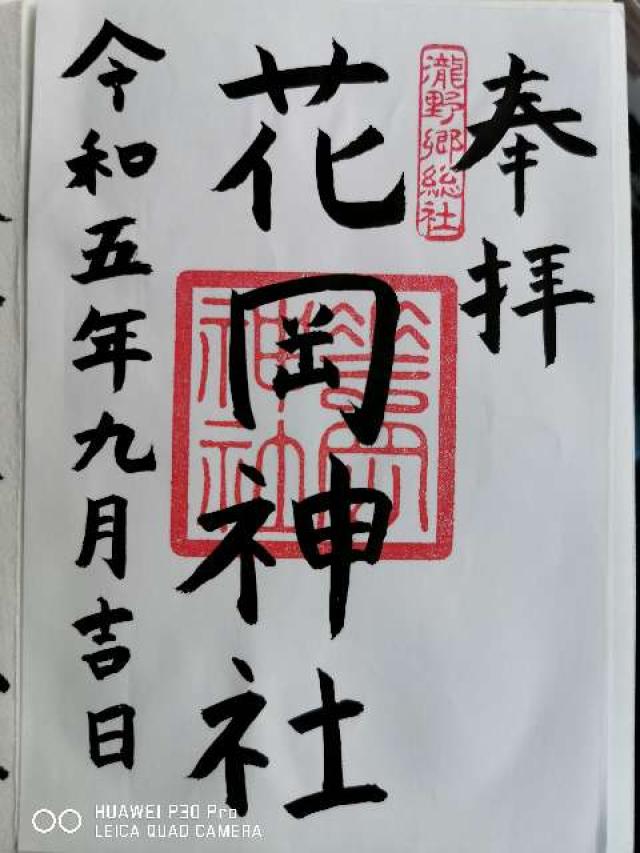 奉拝
瀧野郷総社
花岡神社
華岡神社
令和五年九月吉日
HUAWEI P30 Pro
LEICA QUAD CAMERA